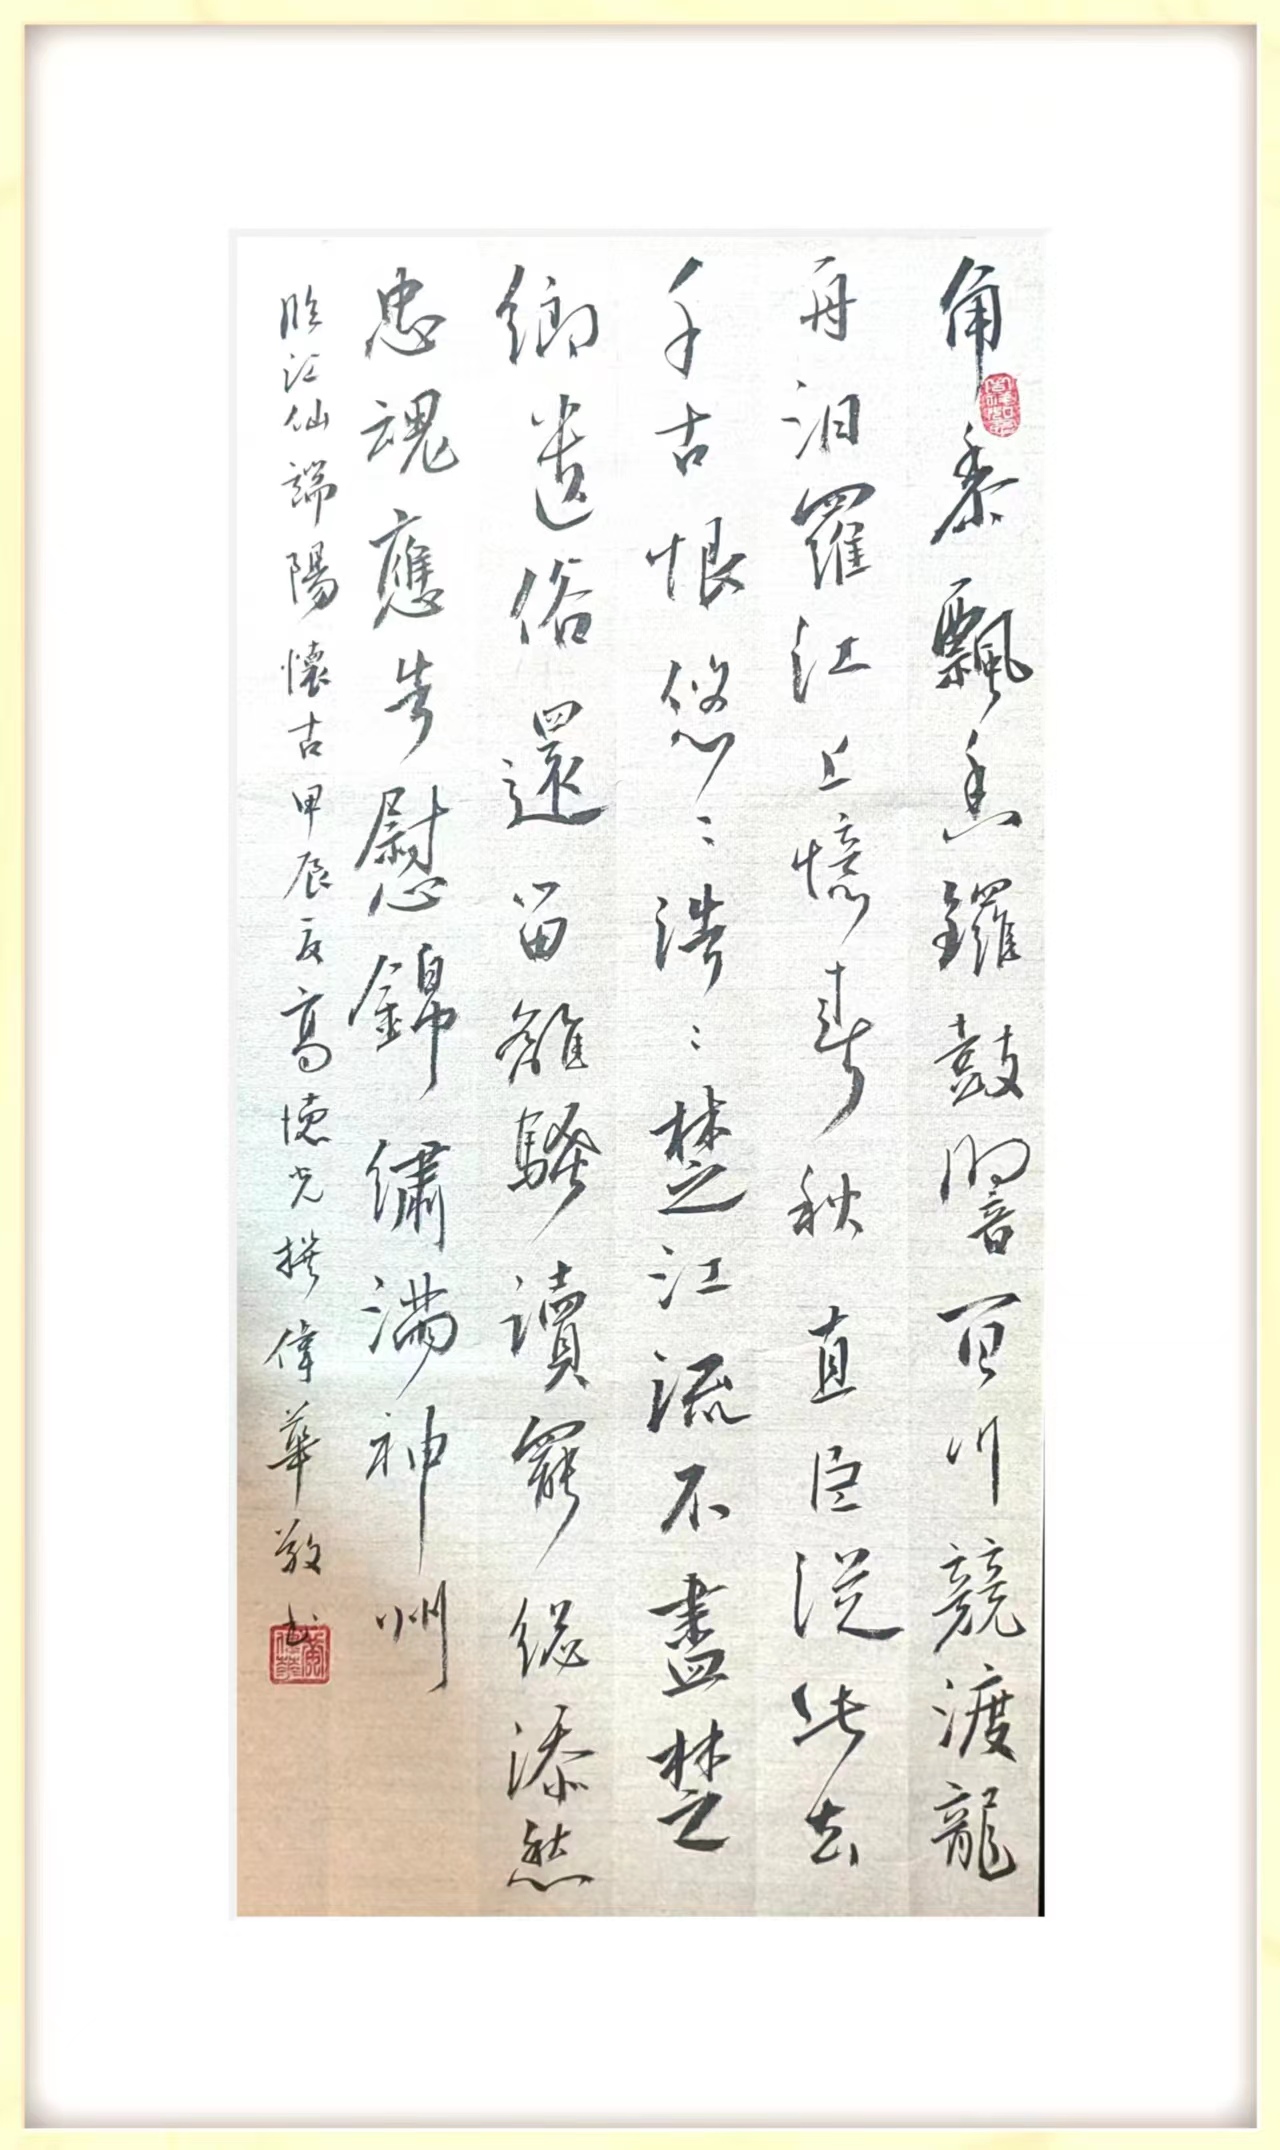 角黍飄香鑼鼓響百川競渡龍
舟汨羅江上憶春秋直臣從此去
千古恨悠〻浩〻楚江流不盡楚
鄉遺俗還留離騷讀罷總添愁
忠魂應告慰錦繡滿神州
臨江仙端陽懷古甲辰夏高德光撰偉華敬書